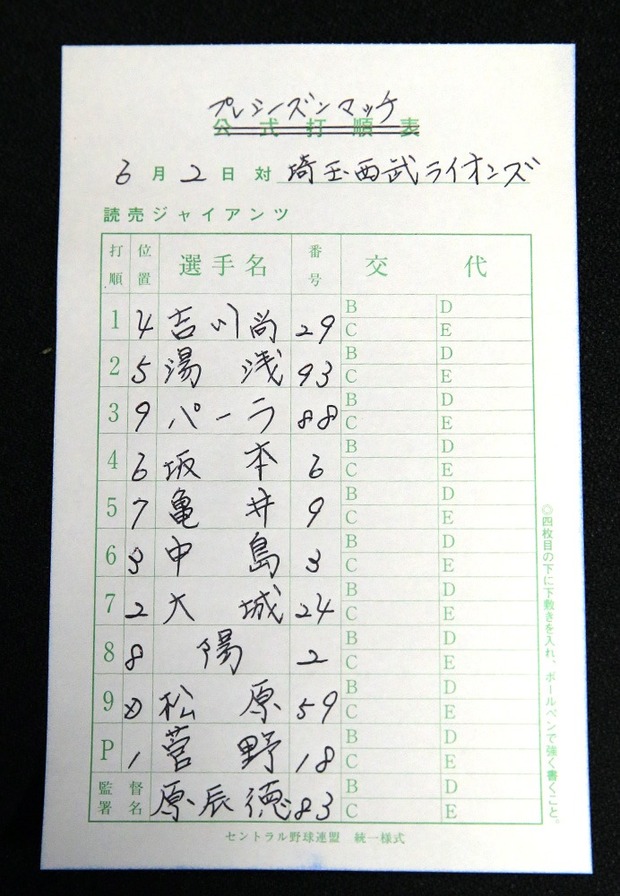 プレシーズンマッチ
公式打順表
6月2日対 埼玉西武ライオンズ
読売ジャイアンツ
打順 位置 選手名 番号 交代
1 4 吉川尚 29 B D C E
2 5 湯浅 93 B D C E
3 9 パーラ 88 B D C E
4 6 坂本 6 B D C E
5 7 亀井 9 B D C E
6 3 中島 3 B D C E
7 2 大城 24 B D C E
8 8 陽 2 B D C E
9 D 松原 59 B D C E
P 1 菅野 18 B D C E
監督署名 原辰徳 83 B D C E
◎四枚目の下に下敷きを入れ、ボールペンで強く書くこと。
セントラル野球連盟 統一様式